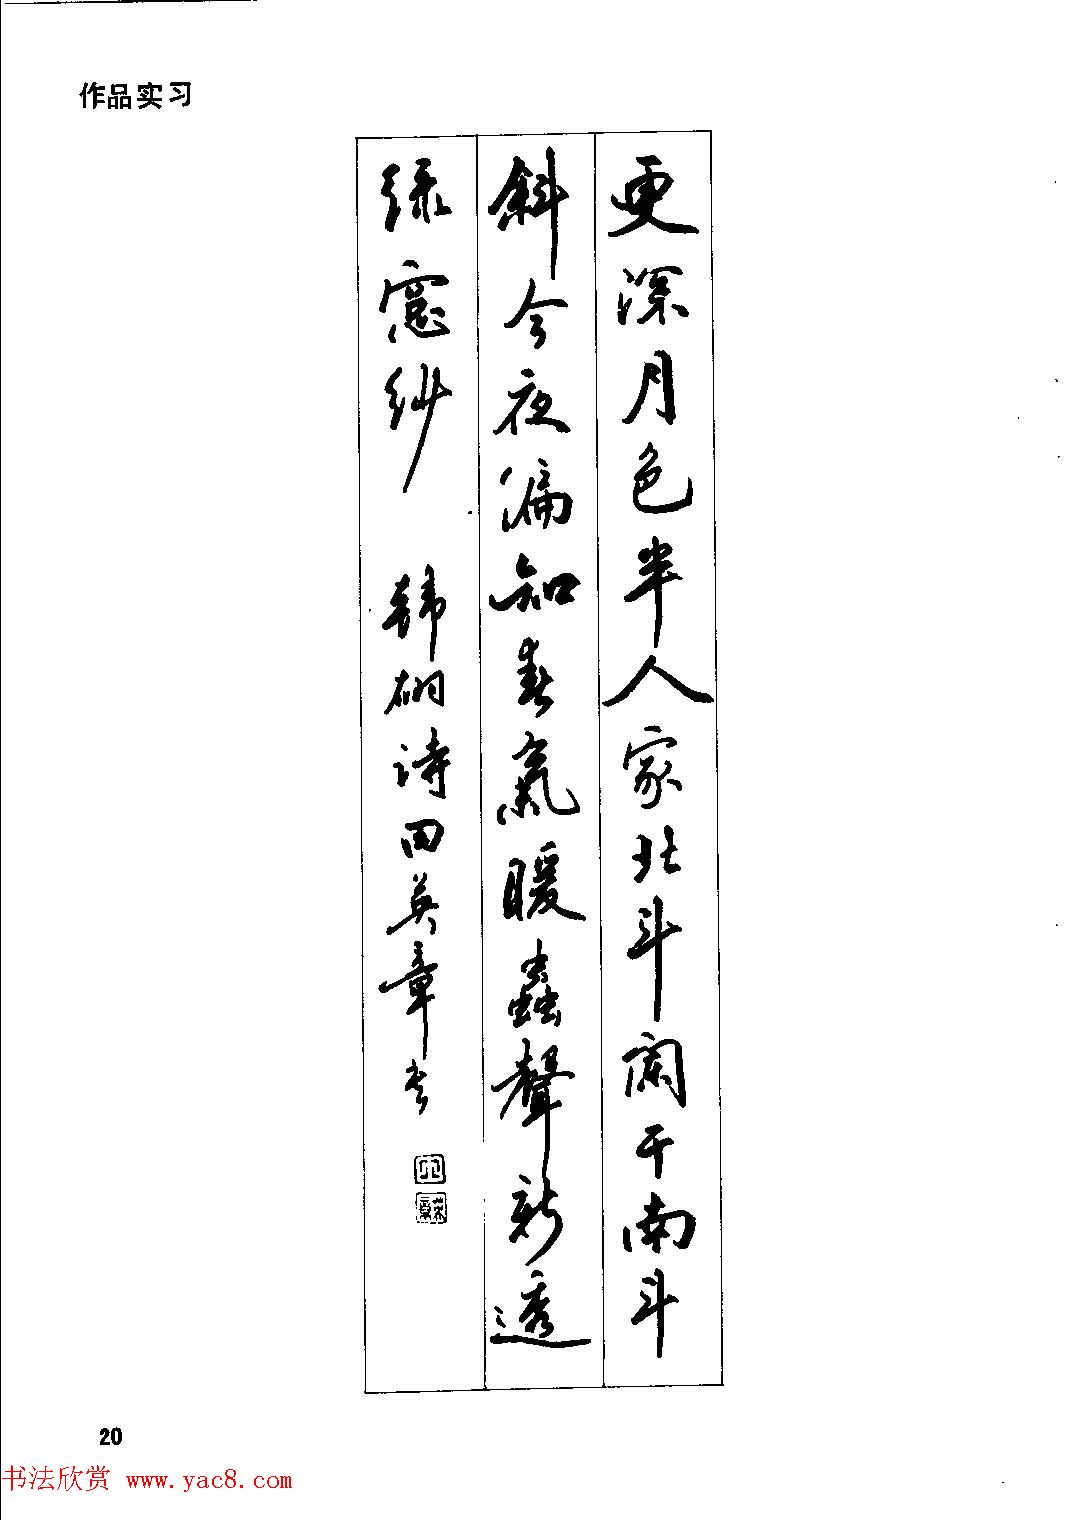 作品实习
更深月色半人家北斗阑干南斗
斜今夜偏知春氣暖蟲聲新透
绿窓纱 韩翃诗田英章书
20
书法欣赏 www.yac8.com